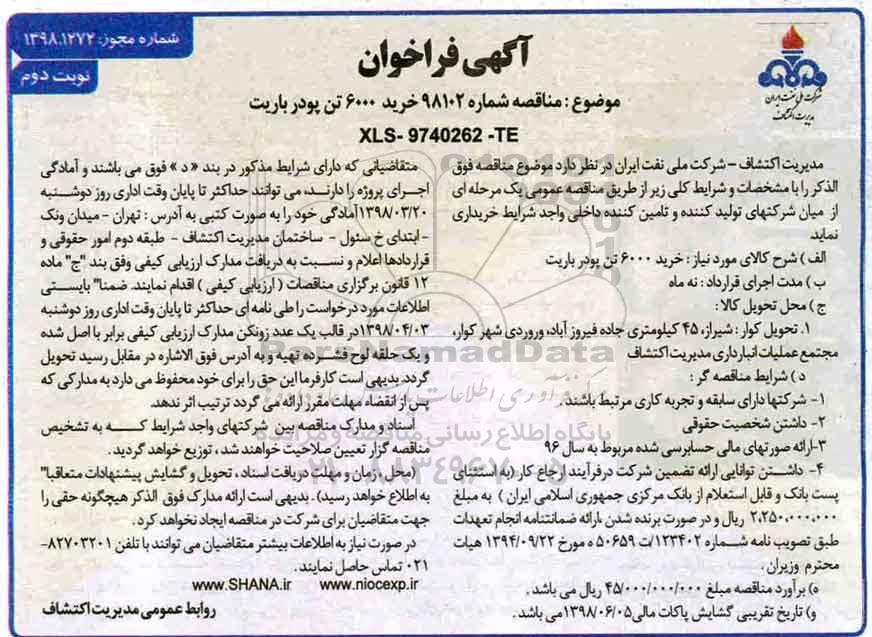 شماره مجوز: ۱۳۹۸.۱۲۷۲
نوبت دوم
آگهی فراخوان
شرکت ملی نفت ایران
مدیریت اکتشاف
موضوع : مناقصه شماره ۹۸۱۰۲ خرید ۶۰۰۰ تن پودر باریت
XLS- 9740262 -TE
مدیریت اکتشاف – شرکت ملی نفت ایران در نظر دارد موضوع مناقصه فوق
الذکر را با مشخصات و شرایط کلی زیر از طریق مناقصه عمومی یک مرحله ای
از میان شرکتهای تولید کننده و تامین کننده داخلی واجد شرایط خریداری
نماید.
الف ) شرح کالای مورد نیاز : خرید ۶۰۰۰ تن پودر باریت
ب ) مدت اجرای قرارداد : نه ماه
ج ) محل تحویل کالا :
۱. تحویل کوار : شیراز، ۴۵ کیلومتری جاده فیروز آباد، ورودی شهر کوار،
مجتمع عملیات انبارداری مدیریت اکتشاف
د ) شرایط مناقصه گر :
۱- شرکتها دارای سابقه و تجربه کاری مرتبط باشند.
۲- داشتن شخصیت حقوقی
۳-ارائه صورتهای مالی حسابرسی شده مربوط به سال ۹۶
۴- داشتن توانایی ارائه تضمین شرکت در فرآیند ارجاع کار (به استثنای
پست بانک و قابل استعلام از بانک مرکزی جمهوری اسلامی ایران ) به مبلغ
۲،۲۵۰،۰۰۰،۰۰۰ ریال و در صورت برنده شدن ،ارائه ضمانتنامه انجام تعهدات
طبق تصویب نامه شماره ۱۲۳۴۰۲/ت ۵۰۶۵۹ ه مورخ ۱۳۹۴/۰۹/۲۲ هیات
محترم وزیران .
ه) برآورد مناقصه مبلغ ۴۵/۰۰۰/۰۰۰/۰۰۰ ریال می باشد .
و) تاریخ تقریبی گشایش پاکات مالی ۱۳۹۸/۰۶/۰۵ می باشد .
متقاضیانی که دارای شرایط مذکور در بند « د » فوق می باشند و آمادگی
اجرای پروژه را دارند، می توانند حداکثر تا پایان وقت اداری روز دوشنبه
۱۳۹۸/۰۳/۲۰ آمادگی خود را به صورت کتبی به آدرس : تهران - میدان ونک
- ابتدای خ سئول - ساختمان مدیریت اکتشاف - طبقه دوم امور حقوقی و
قراردادها اعلام و نسبت به دریافت مدارک ارزیابی کیفی وفق بند "ج" ماده
۱۲ قانون برگزاری مناقصات ( ارزیابی کیفی ) اقدام نمایند. ضمنا" بایستی
اطلاعات مورد درخواست را طی نامه ای حداکثر تا پایان وقت اداری روز دوشنبه
۱۳۹۸/۰۴/۰۳ در قالب یک عدد زونکن مدارک ارزیابی کیفی برابر با اصل شده
و یک حلقه لوح فشرده تهیه و به آدرس فوق الاشاره در مقابل رسید تحویل
گردد. بدیهی است کارفرما این حق را برای خود محفوظ می دارد به مدارکی که
پس از انقضاء مهلت مقرر ارائه می گردد ترتیب اثر ندهد.
اسناد و مدارک مناقصه بین شرکتهای واجد شرایط که به تشخیص
مناقصه گزار تعیین صلاحیت خواهند شد ، توزیع خواهد گردید.
(محل، زمان و مهلت دریافت اسناد ، تحویل و گشایش پیشنهادات متعاقبا"
به اطلاع خواهد رسید). بدیهی است ارائه مدارک فوق الذکر هیچگونه حقی را
جهت متقاضیان برای شرکت در مناقصه ایجاد نخواهد کرد .
در صورت نیاز به اطلاعات بیشتر متقاضیان می توانند با تلفن ۸۲۷۰۳۲۰۱-
۰۲۱ تماس حاصل نمایند .
www.SHANA.ir www.niocexp.ir
روابط عمومی مدیریت اکتشاف
ParsNamadData
پایگاه اطلاع رسانی مناقصه و مزایده